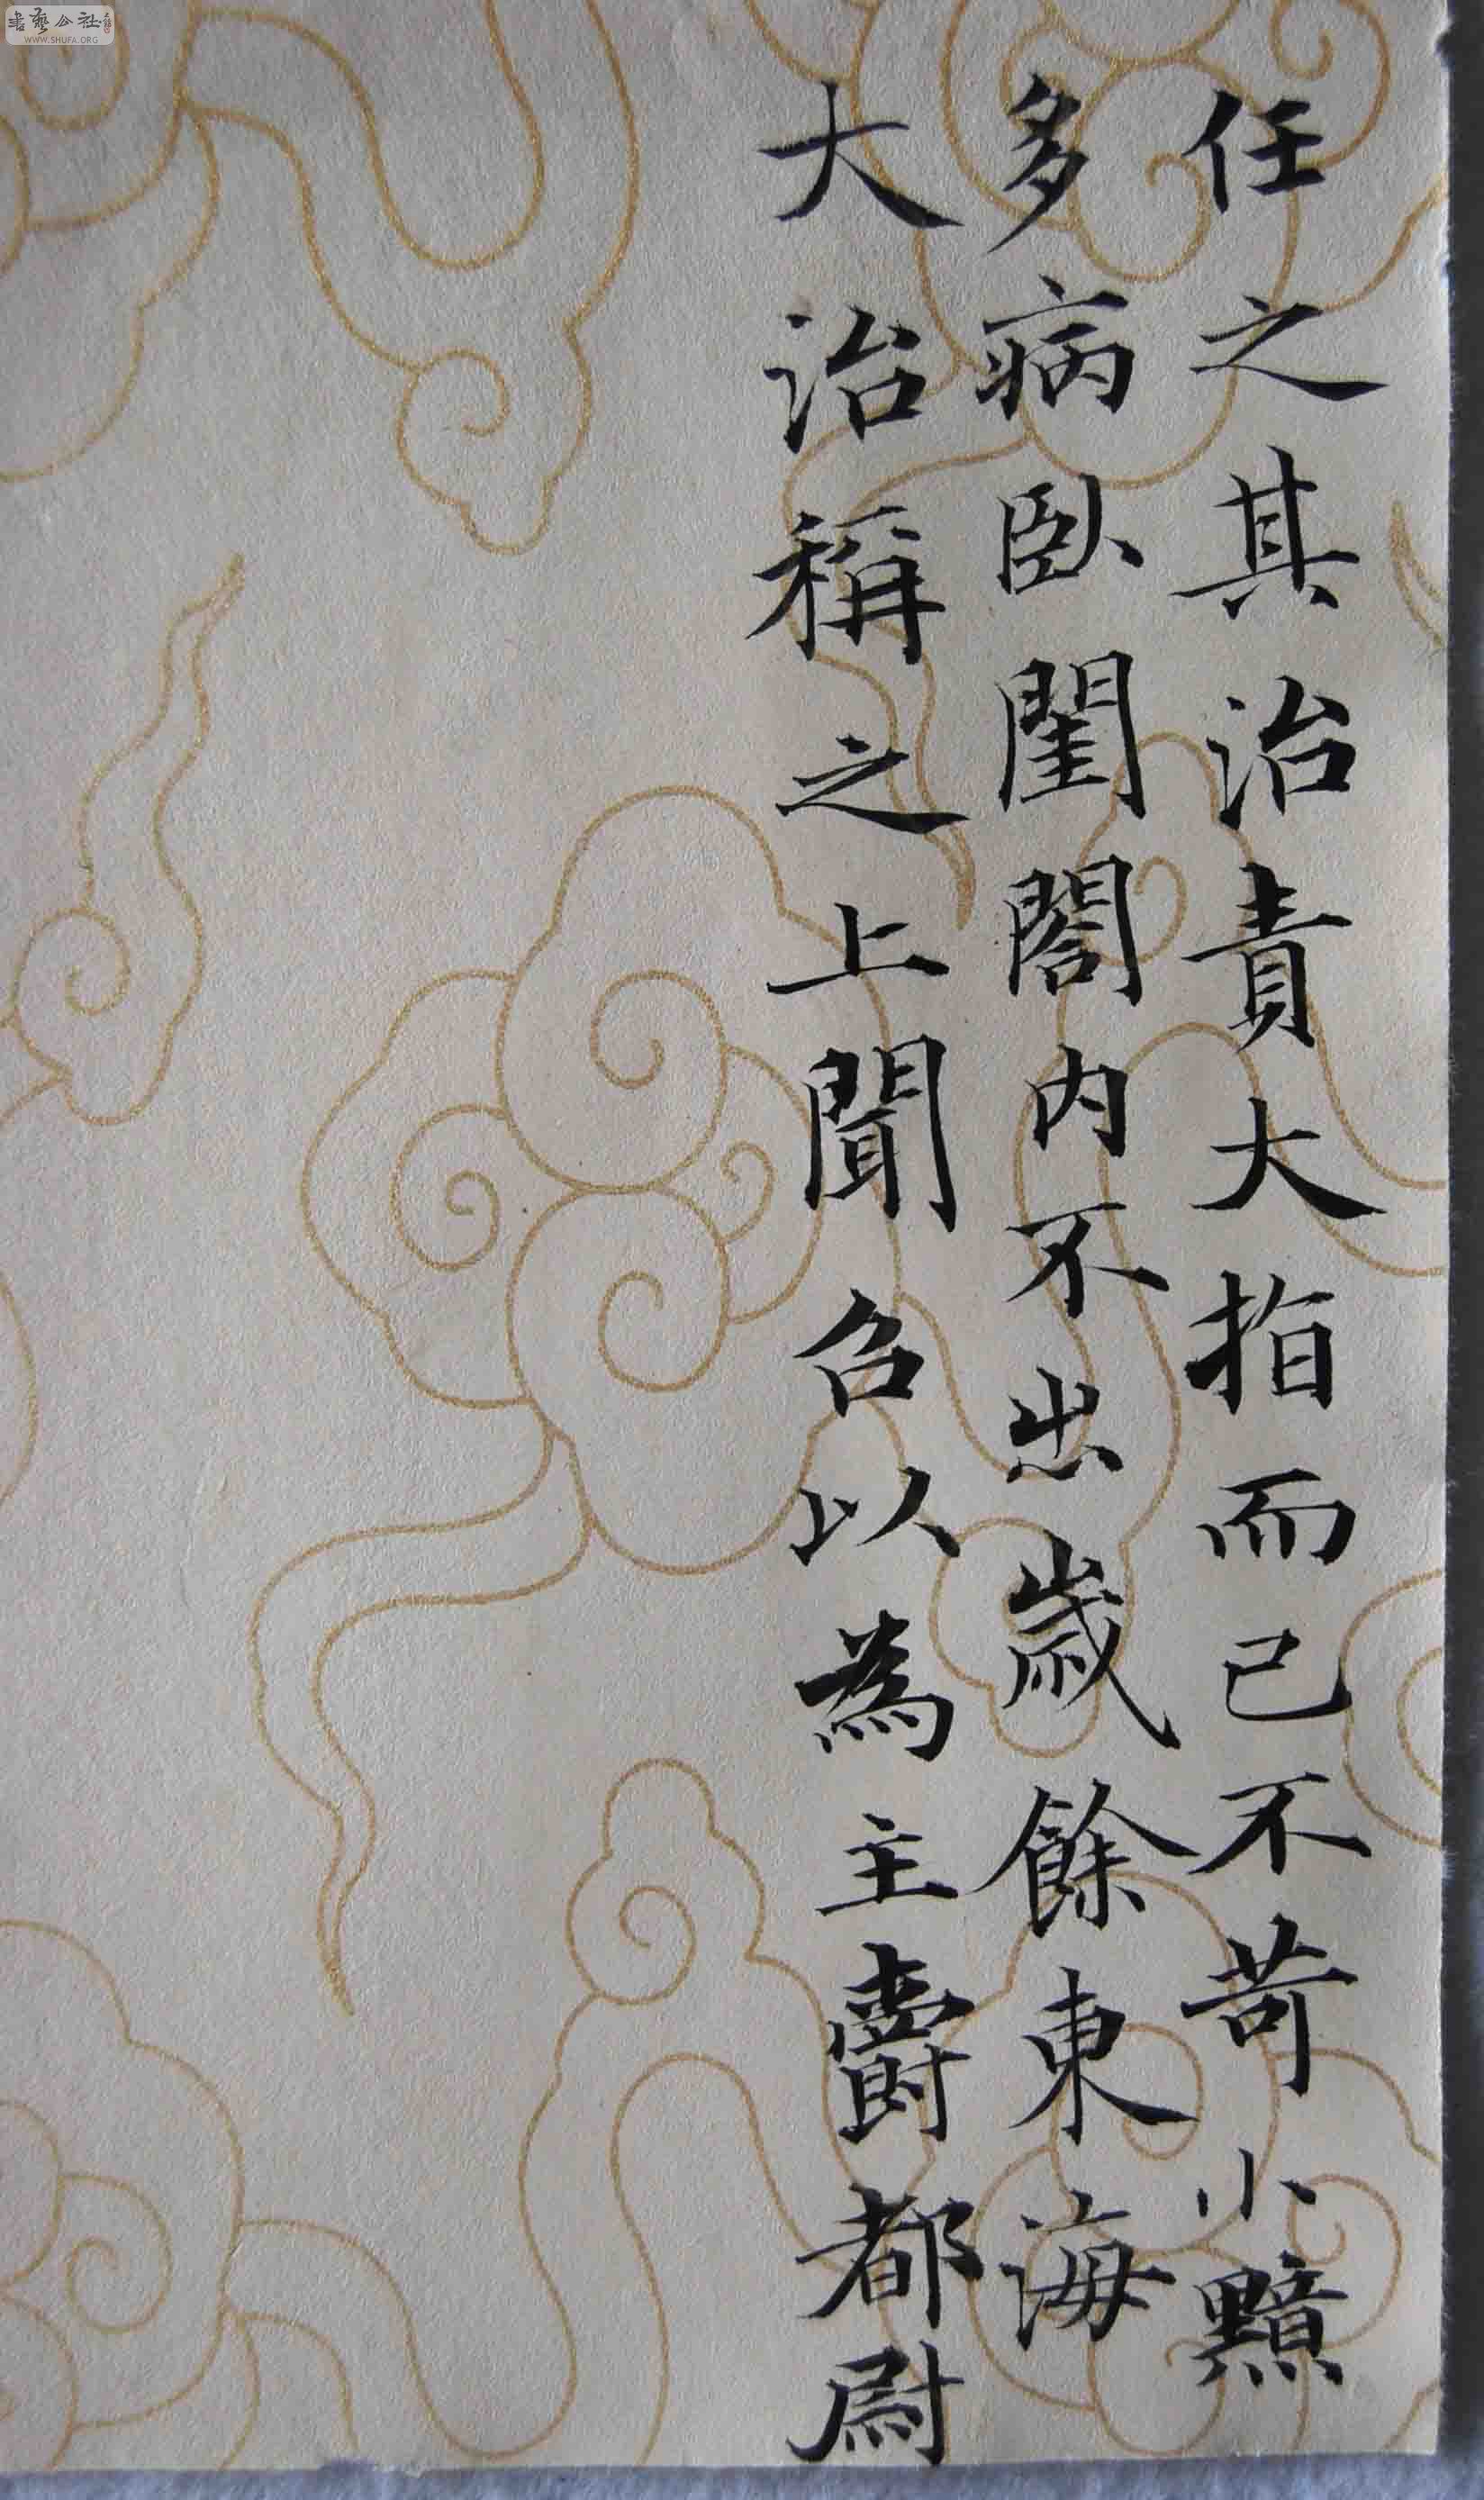 任之其治責大指而已不苛小黯
多病臥閨閤内不出歲餘東海
大治稱之上聞召以為主爵都尉
書藝公社
WWW.SHUFA.ORG